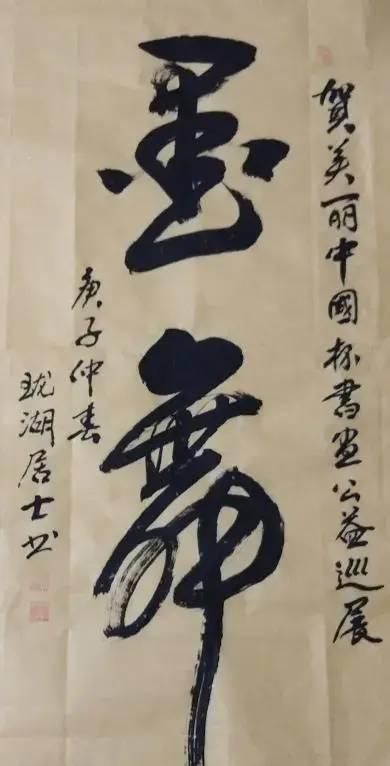 贺美丽中国杯書画公益巡展
墨舞
庚子仲春
珑湖居士书